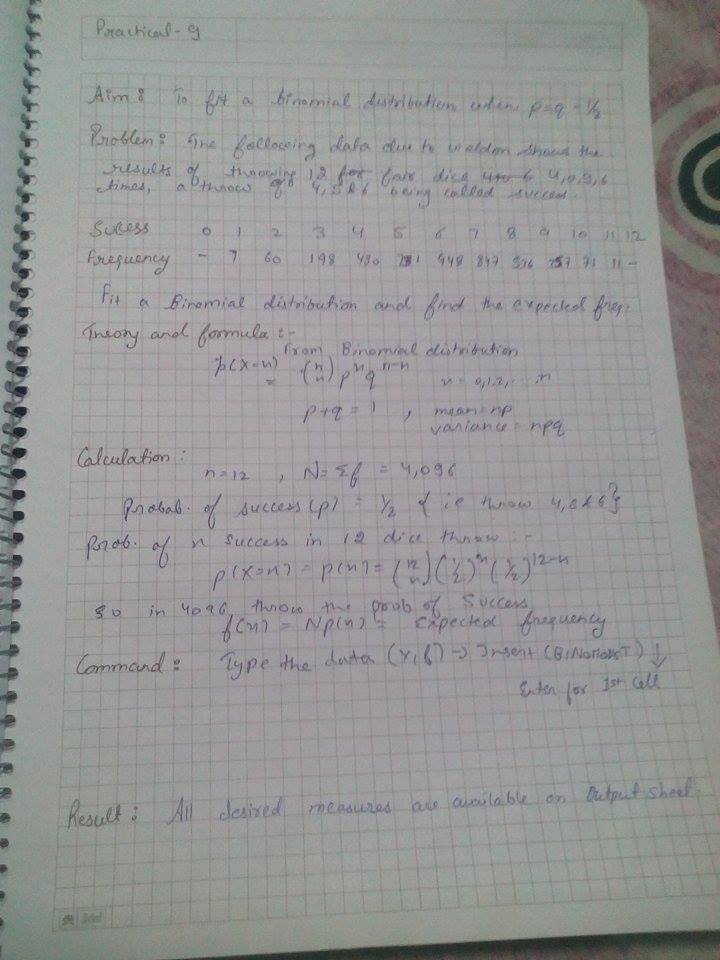 Practical - 9
Aim: To fit a binomial distribution when p=q=1/2
Problem: The following data due to weldon shows the
results of throwing 12 fair dice 4,0,9,6
times, a throw of 4,5&6 being called success.
Sucess 0 1 2 3 4 5 6 7 8 9 10 11 12
Frequency - 7 60 198 430 731 948 847 536 257 71 11 -
Fit a Binomial distribution and find the expected freq.
Theory and formula :-
From Binomial distribution
p(X=n) = (n n) p^n q^n-n n = 0,1,2,...,n
p+q = 1 , mean=np
variance = npq
Calculation :
n=12 , N= Σf = 4,096
Probab. of success (p) = 1/2 { ie throw 4,5&6}
Prob. of n success in 12 dice throw :-
p(X=n) = p(n) = (12 n) (1/2)^n (1/2)^12-n
So in 4096 throw the prob of Success
f(n) = Np(n) = Expected frequency
Command : Type the data (X,f) → Insert (BINOMDIST) ↓
Enter for 1st Cell
Result : All desired measures are available on Output Sheet.